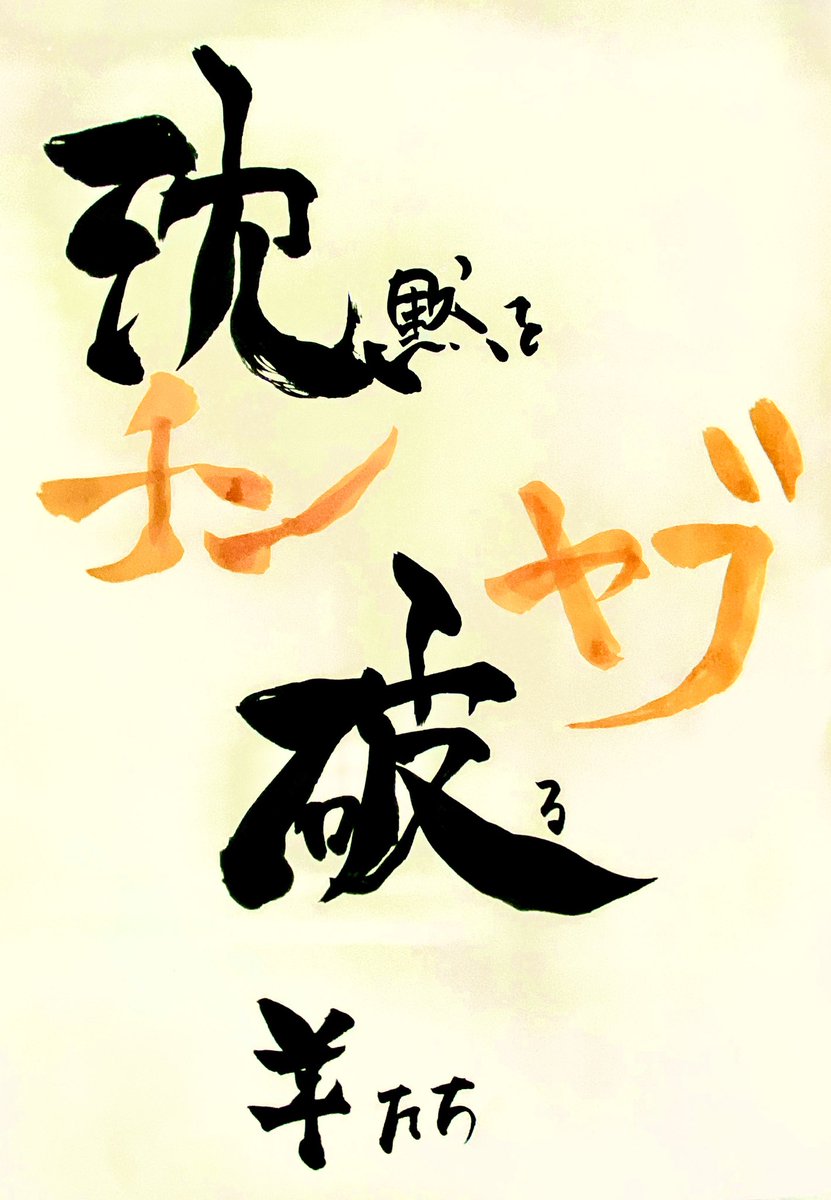 沈黙を
チン ヤブ
破る
羊たち